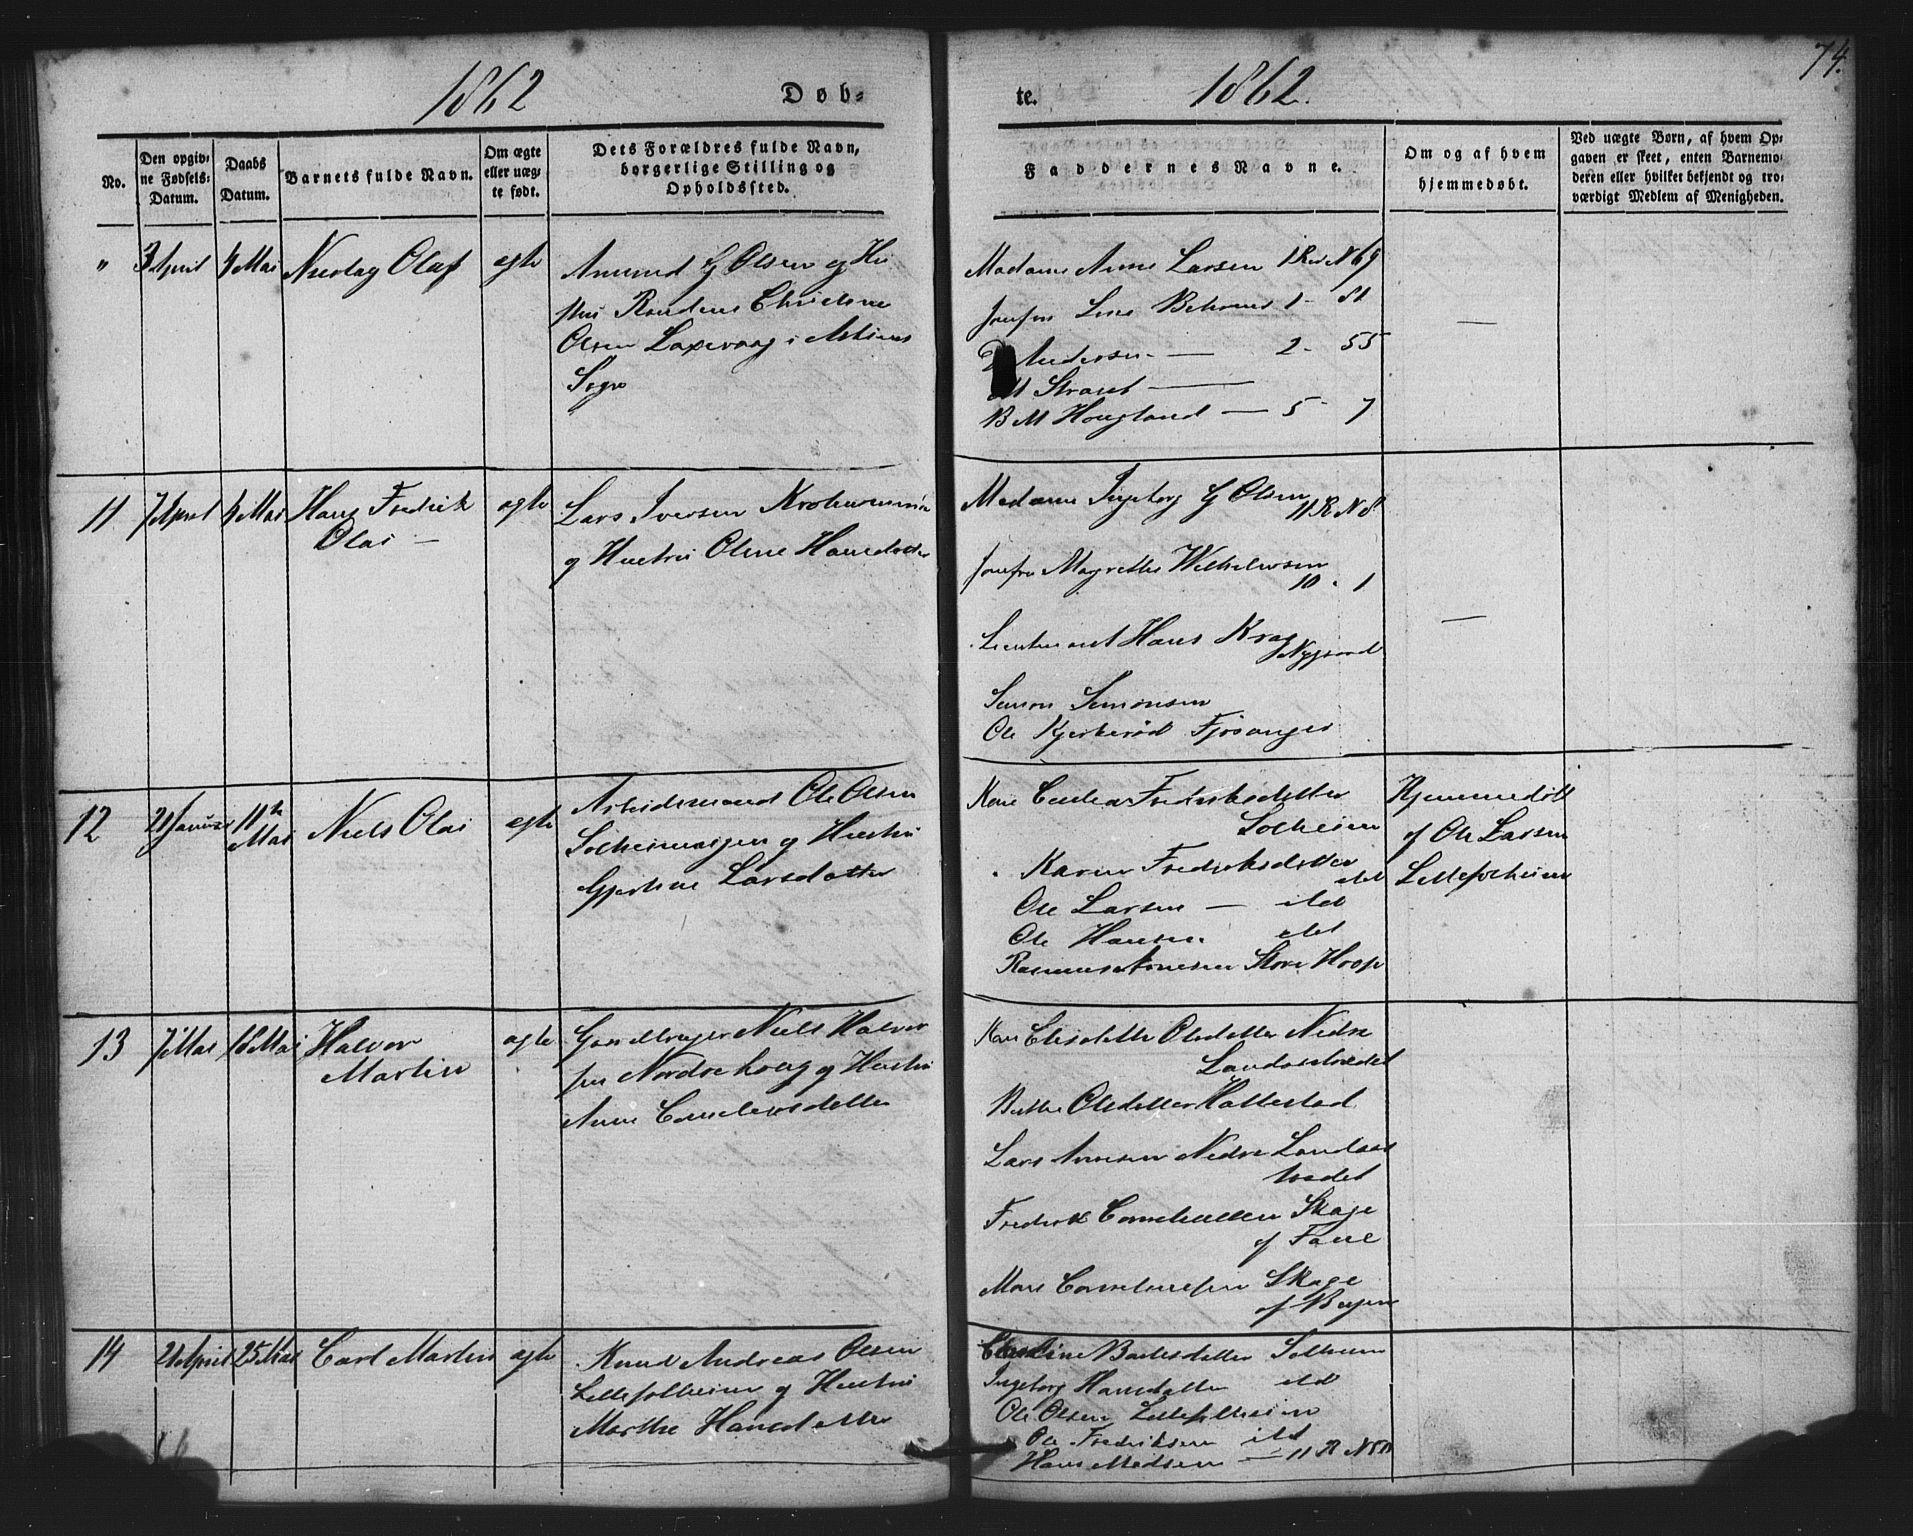 74.
1862
Døb-
te.
1862.
No.
Den opgiv-
ne Fødsels-
Datum.
Daabs
Datum.
Barnets fulde Navn.
Om ægte
eller uæg-
te født.
Dets Forældres fulde Navn,
borgerlige Stilling og
Opholdssted.
Faddernes Navne.
Om og af hvem
hjemmedøbt.
Ved uægte Børn, af hvem Op-
gaven er skeet, enten Barnemo-
deren eller hvilket bekjendt og tro-
værdigt Medlem af Menigheden.
"
3 April
4 Mai
Nicolay Olaf
ægte
Amund G Olsen og Hu
stru Christine
Olsen Laxevaag i Askøens
Sogn
Madame Anne Larsen 1 Rod N 69
Jomfru Line 1 - 81
Andersen - 2 - 55
M
B M Hougland - 5 - 7
11
7 April
4 Mai
Hans Fredrik
Olai -
ægte
Lars Iversen
og Hustru Oline Hansdatter
Madame Ingeborg G Olsen
11 R N 8
Jomfru Magrethe Wilhelmsen
10 - 1
Lieutenant Hans Krag
Nygaard
Simon Simonsen
Ole Fjøsanger
12
21 Januar
11te
Mai
Niels Olai
ægte
Arbeidsmand Ole Olsen
Solheimsvigen og Hustru
Gjertine Larsdatter
Kone Fredriksdatter
Solheim
Karen Fredriksdatter
itd
Ole Larsen - itd
Ole Hansen itd
Rasmus Arnesen Store Hoop
Hjemmedøbt
af Ole Larsen
Lillesolheim
13
7 Mai
18 Mai
Halvor
Martin
ægte
Gaardbruger Niels Halvor
sen Nordre og Hustru
Anne Corneliusdatter
Kone Elisabeth Olsdatter Nedre
Landaastrædet
Berthe Olsdatter Hattestad
Lars Arnesen Nedre Landaas
trædet
Fredrik Corneliussen Skage
af Fane
Mons Corneliussen Skage
af Bergen
14
21 April
25 Mai
Carl Martin
ægte
Knud Andreas Olsen
Lillesolheim og Hustru
Marthe Hansdatter
Bertesdatter Solheim
Ingeborg Hansdatter itd
Ole Olsen Lillesolheim
Ole Fredriksen itd
Hans Madsen - 11 R N